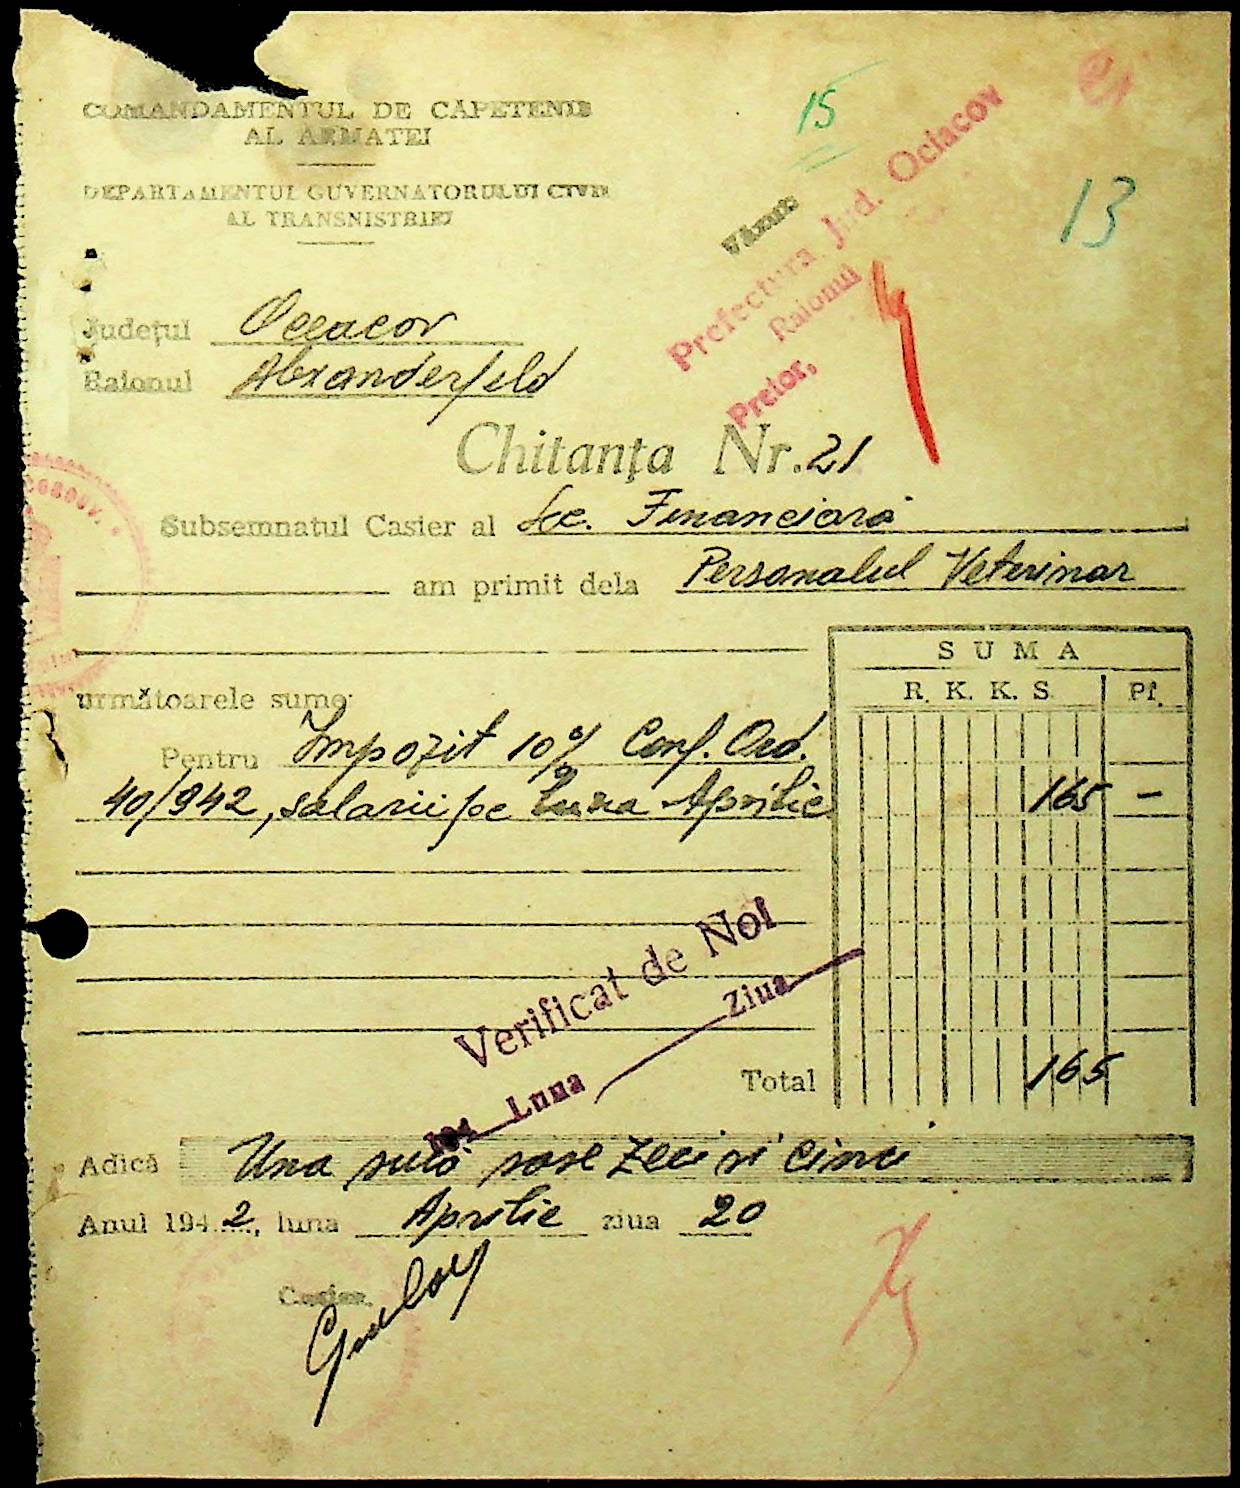 COMANDAMENTUL DE CĂPETENIE
AL ARMATEI
DEPARTAMENTUL GUVERNATORULUI CIVIL
AL TRANSNISTRIEI
15
13
Văzut:
Prefectura Jud. Ociacov
Raionul
Pretor,
Județul Oceacov
Raionul Alexanderfeld
Chitanța Nr. 21
Subsemnatul Casier al Sec. Financiară
am primit dela Personalul Veterinar
SUMA
R. K. K. S. Pf.
următoarele sume:
Pentru Impozit 10% Conf. Ord.
40/942, salarii pe luna Aprilie 165 –
Verificat de Noi
194 Luna Ziua
Total 165
Adică Una sută șase zeci și cinci
Anul 1942, luna Aprilie ziua 20
Casier,